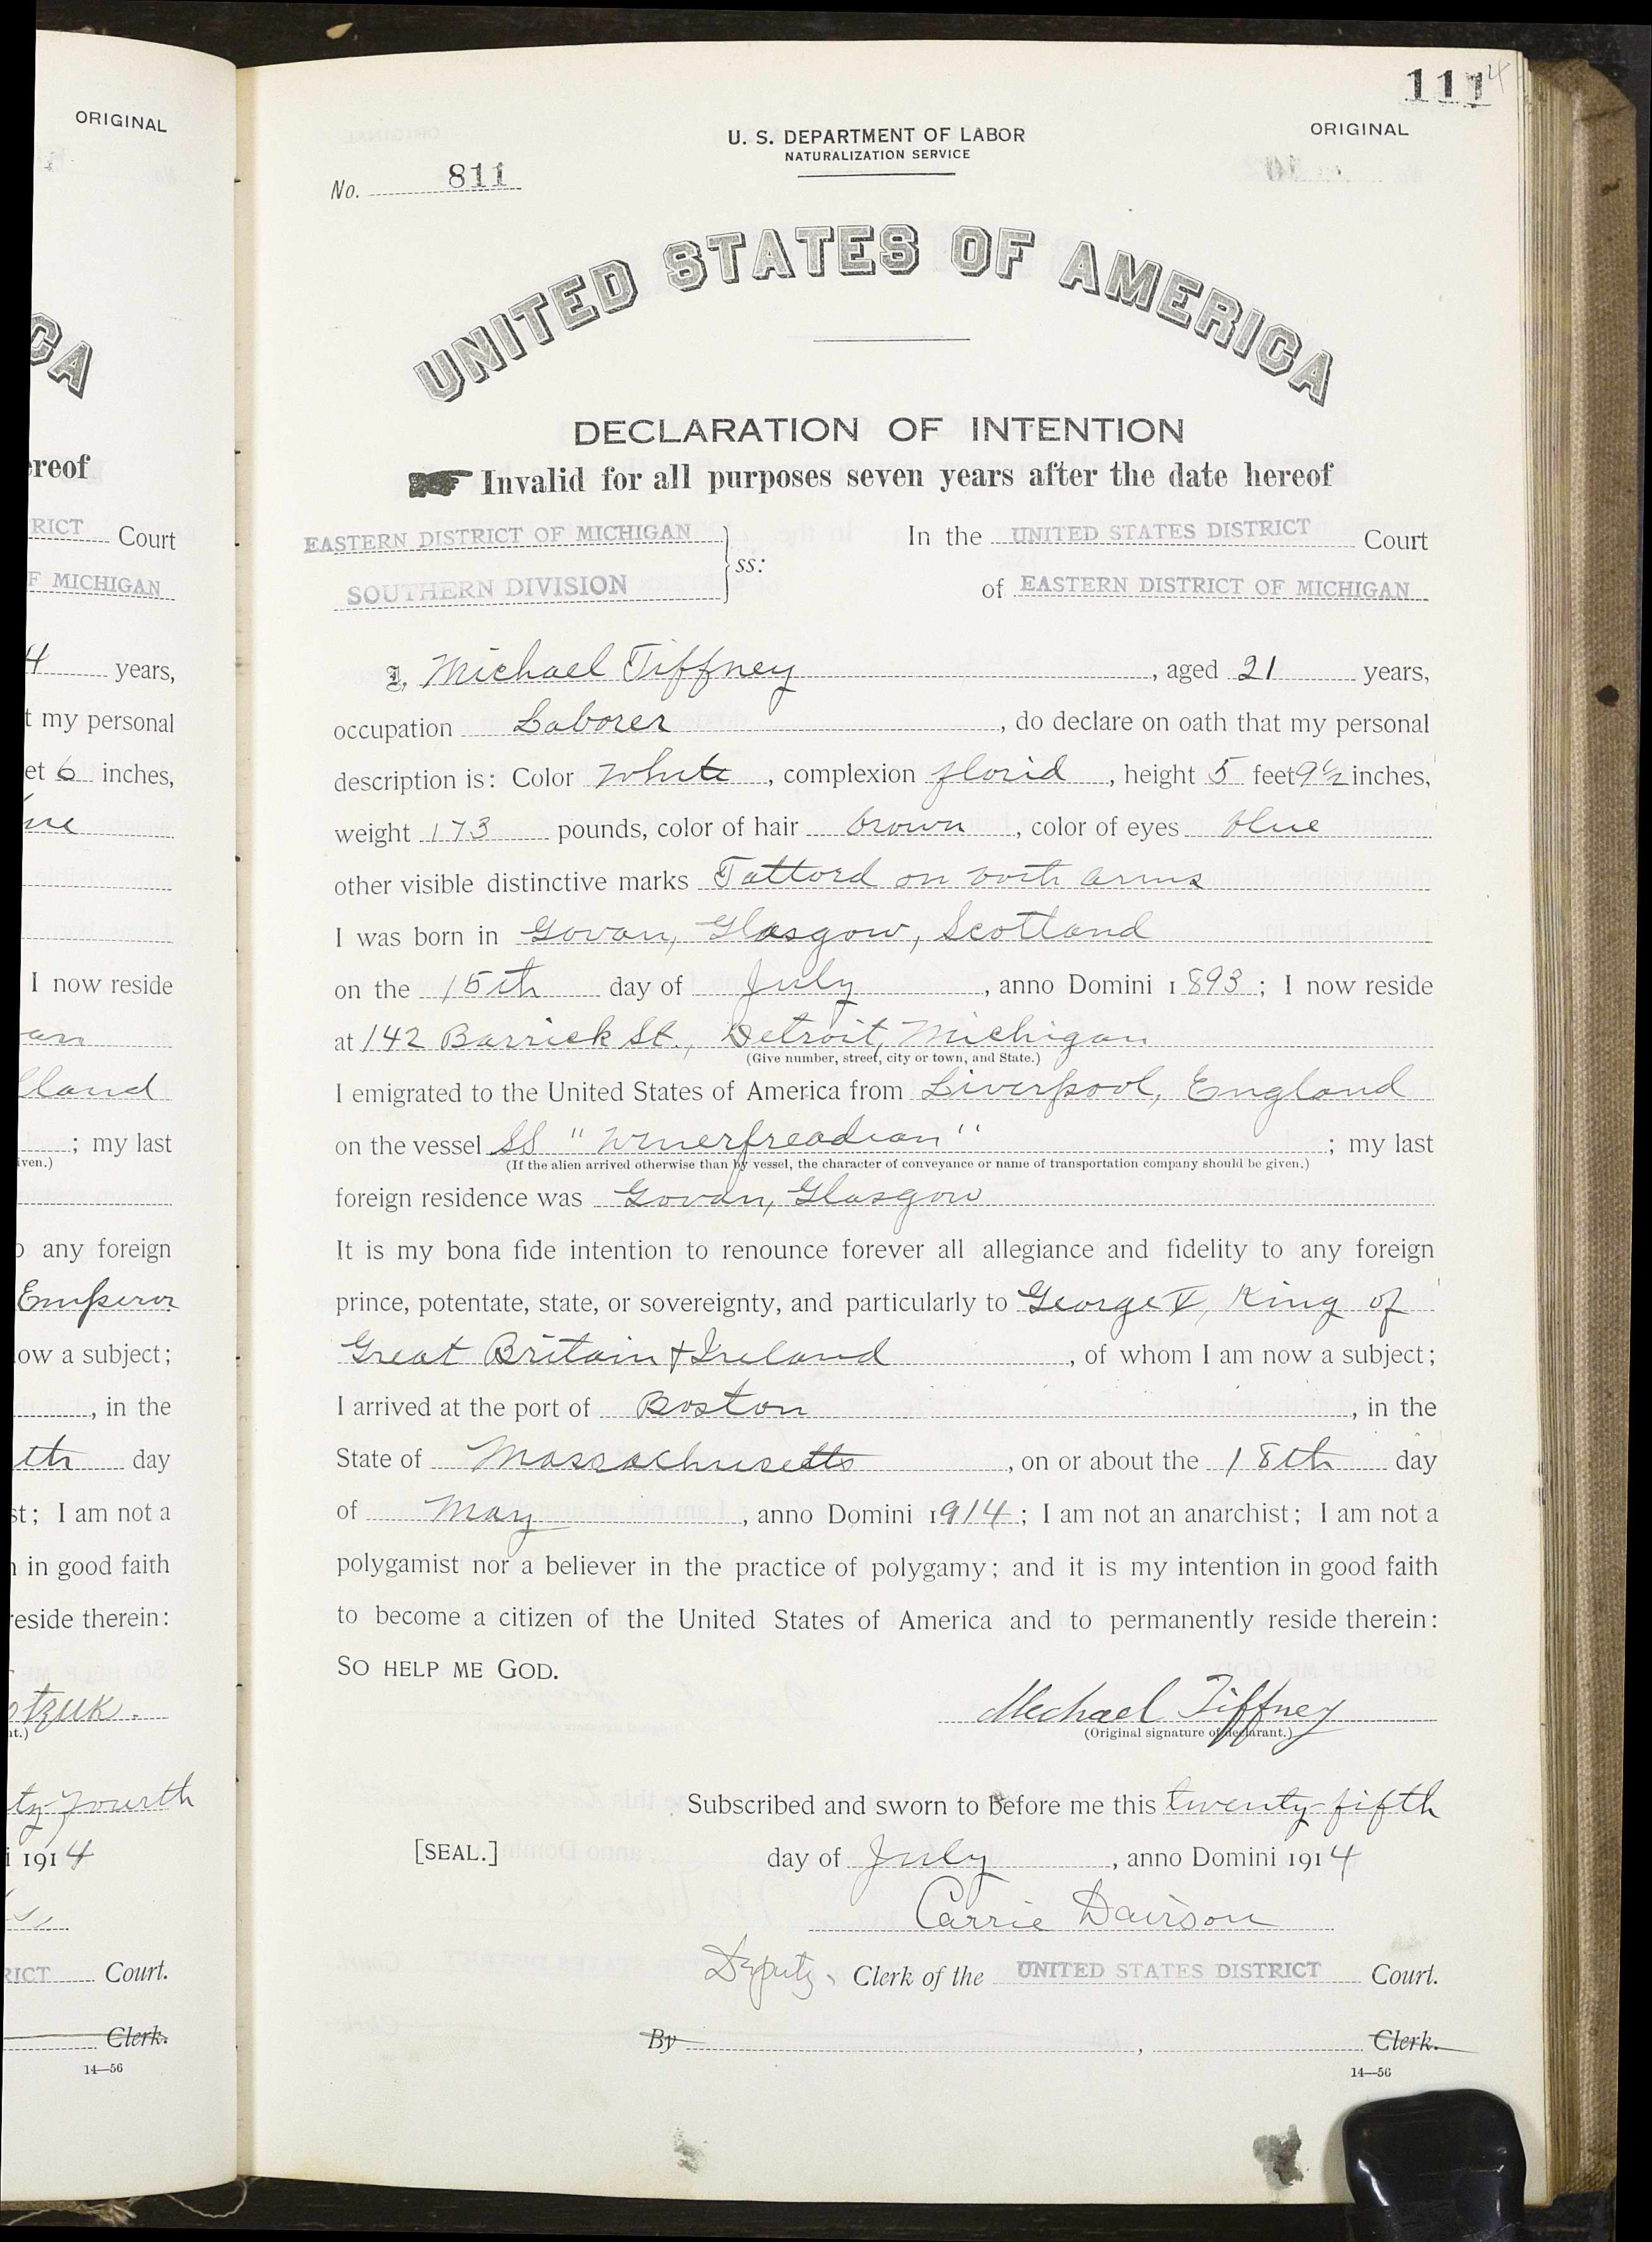 ORIGINAL
CA
ereof
RICT Court
F MICHIGAN
4 years,
t my personal
et 6 inches,
I now reside
an
lland
; my last
iven.)
any foreign
Emperor
ow a subject;
, in the
th day
st; I am not a
in good faith
eside therein:
otzuk.
nt.)
ty-fourth
i 1914
RICT Court.
Clerk.
14—56
111
4
U. S. DEPARTMENT OF LABOR
NATURALIZATION SERVICE
ORIGINAL
No. 811
UNITED STATES OF AMERICA
DECLARATION OF INTENTION
Invalid for all purposes seven years after the date hereof
EASTERN DISTRICT OF MICHIGAN
SOUTHERN DIVISION
ss:
In the UNITED STATES DISTRICT Court
of EASTERN DISTRICT OF MICHIGAN
I, Michael Tiffney, aged 21 years,
occupation Laborer, do declare on oath that my personal
description is: Color White, complexion florid, height 5 feet 9½ inches,
weight 173 pounds, color of hair brown, color of eyes blue
other visible distinctive marks Tattoed on both arms
I was born in Govan, Glasgow, Scotland
on the 15th day of July, anno Domini 1893; I now reside
at 142 Barrick St., Detroit, Michigan
(Give number, street, city or town, and State.)
I emigrated to the United States of America from Liverpool, England
on the vessel SS " "; my last
(If the alien arrived otherwise than by vessel, the character of conveyance or name of transportation company should be given.)
foreign residence was Govan, Glasgow
It is my bona fide intention to renounce forever all allegiance and fidelity to any foreign
prince, potentate, state, or sovereignty, and particularly to George V, King of
Great Britain & Ireland, of whom I am now a subject;
I arrived at the port of Boston, in the
State of Massachusetts, on or about the 18th day
of May, anno Domini 1914; I am not an anarchist; I am not a
polygamist nor a believer in the practice of polygamy; and it is my intention in good faith
to become a citizen of the United States of America and to permanently reside therein:
SO HELP ME GOD.
Michael Tiffney
(Original signature of declarant.)
Subscribed and sworn to before me this twenty-fifth
[SEAL.] day of July, anno Domini 1914
Carrie Davison
Deputy, Clerk of the UNITED STATES DISTRICT Court.
By , Clerk.
14—56